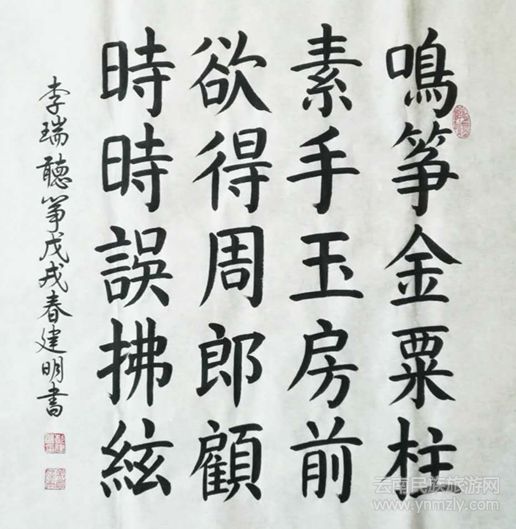 鳴筝金粟柱
素手玉房前
欲得周郎顧
時時誤拂絃
李瑞聽筝戊戌春建明書
云南民族旅游网
www.ynmzly.com